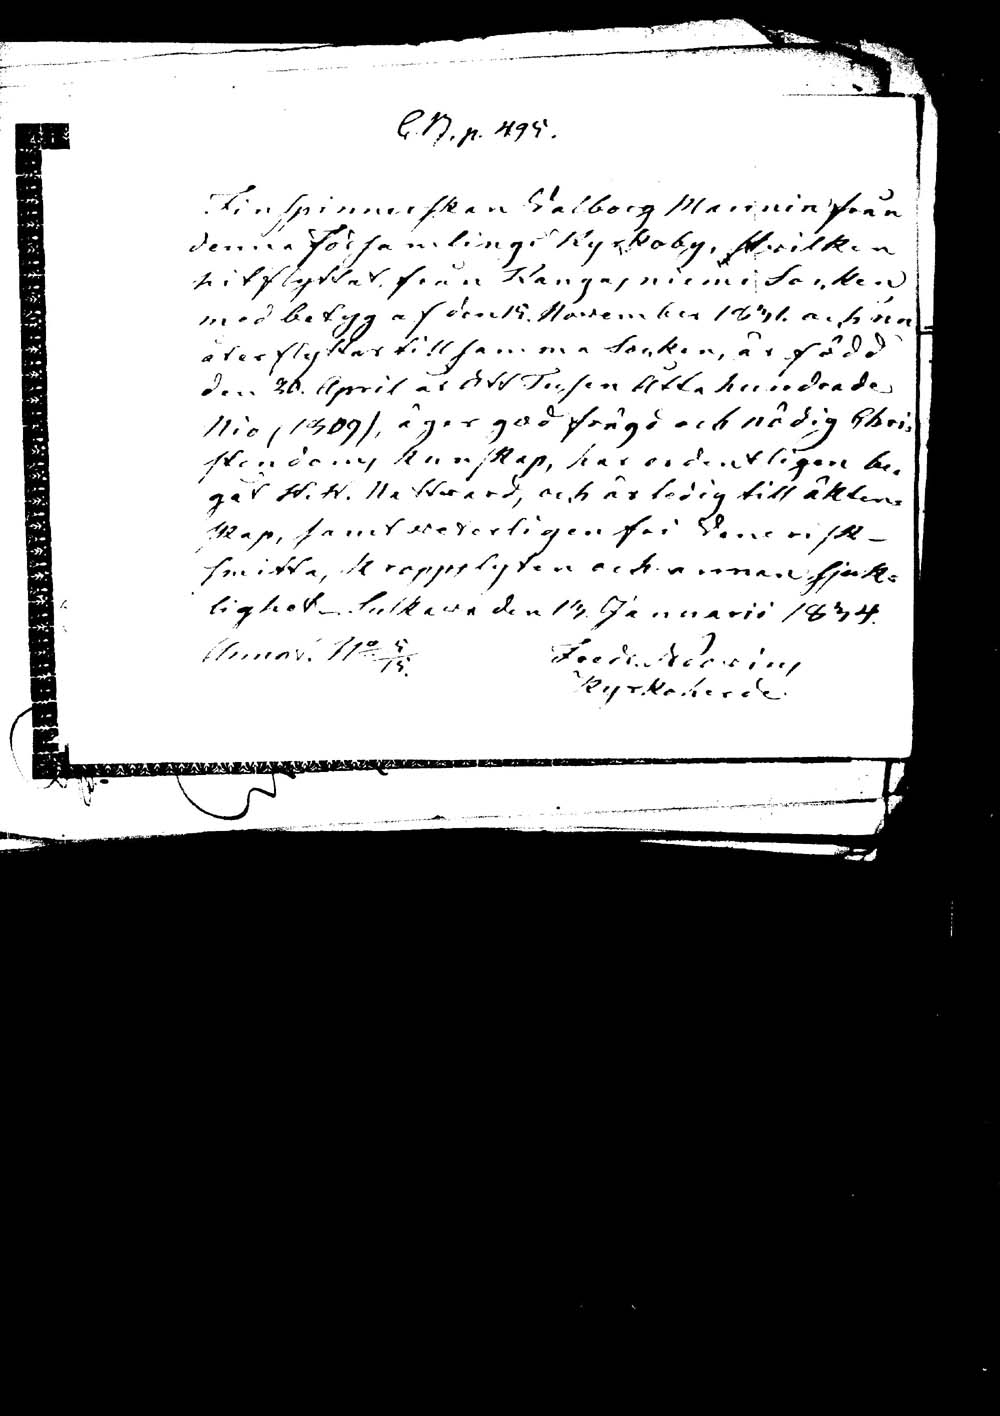 C.B. p. 495.
Finspinnerskan Valborg Maninin från
denna Församlings Kyrkoby, hvilken
hitflyttat från Kangasniemi Socken
med betyg af den 15. November 1831. och nu
återflyttar till samma Socken, är född
den 20. April år Ett Tusen Åtta hundrade
Nio (1809), äger god frägd och nödig Chri-
stendoms kunskap, har ordentligen be-
gåt H.H. Nattvard, och är ledig till äkten-
skap, samt veterligen fri Venerisk-
smitta, kroppslyten och annan sjuk-
lighet. Sulkava den 13. Januarii 1834.
Annot. No 5/15.
Fredr.
Kyrkoherde.